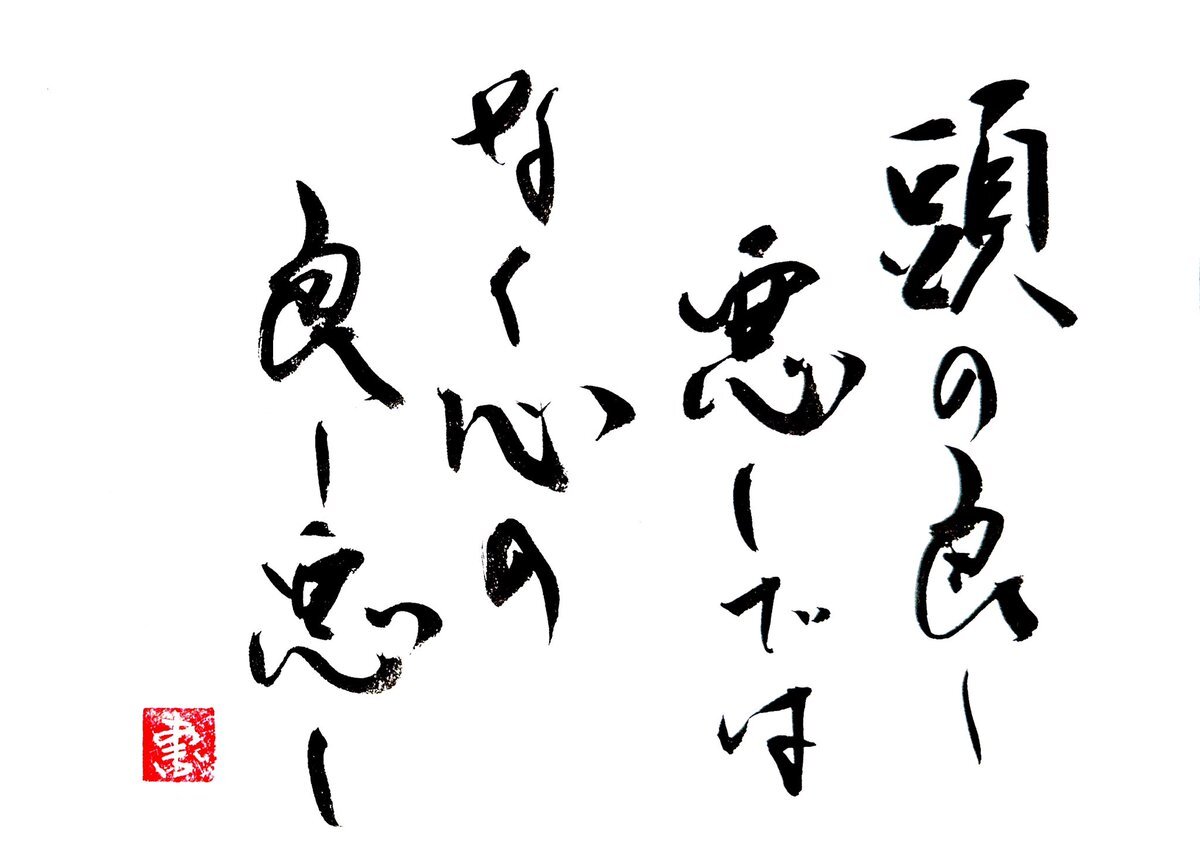 頭の良し
悪しでは
なく心の
良し悪し
書